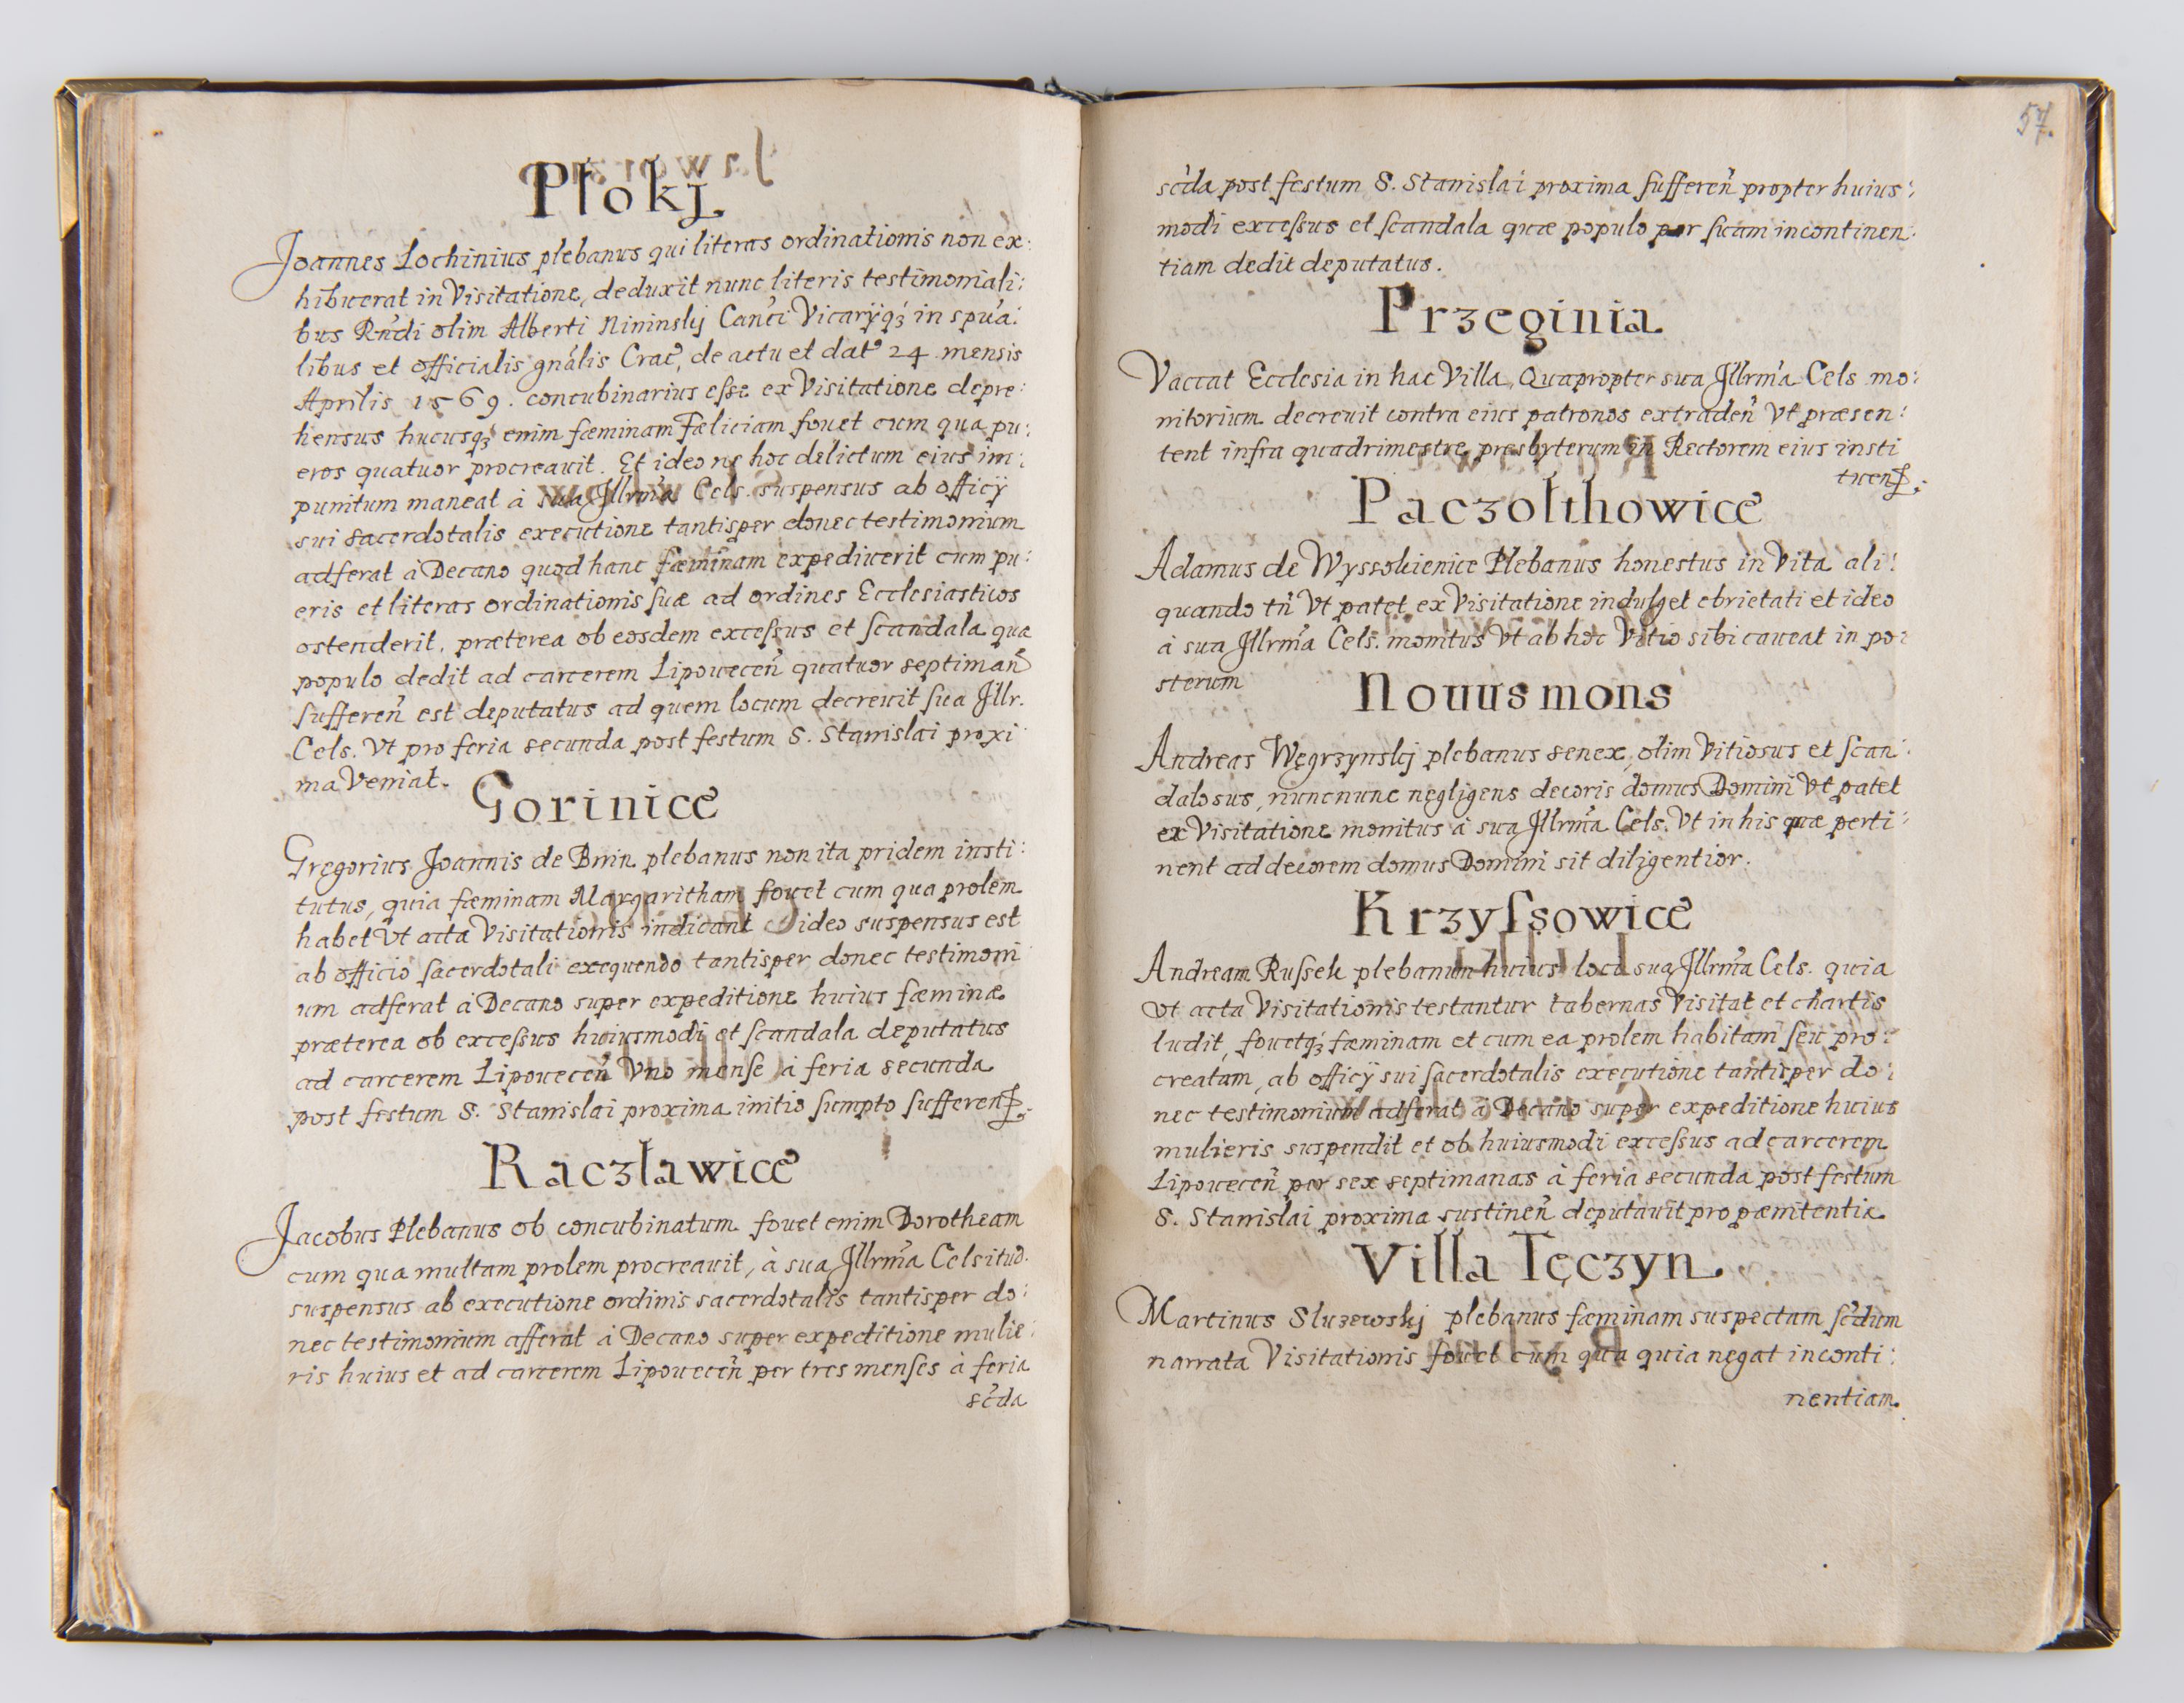 Płokj
Joannes Lochinius plebanus qui literas ordinationis non ex:
hibuerat in Visitatione, deduxit nunc literis testimoniali:
bus Rńdi olim Alberti Nininskj Cańci Vicarÿq́ȝ in spúa:
libus et officialis gńalis Crac̃, de actu et dat° 24 mensis
Aprilis 1569. concubinarius eſse ex Visitatione depre:
hensus hucusq́ȝ enim fæminam Fæliciam fouet cum qua pu:
eros quatuor procreauit. Et ideo ne hoc delictum eius im:
punitum maneat à sua Jllrḿa Cels. suspensus ab officÿ
sui sacerdotalis executione tantisper donec testimonium
adferat à Decano quod hanc fæminam expediuerit cum pu:
eris et literas ordinationis ſuæ ad ordines Ecclesiasticos
ostenderit, præterea ob eosdem exceſsus et ſcandala quæ
populo dedit ad carcerem Lipouecen̄ quatuor septiman̄
ſufferen̄ est deputatus ad quem locum decreuit ſua Jllr.
Cels. Vt pro feria secunda post festum S. Stanislai proxi
ma Veniat.
Gorinice
Gregorius Joannis de Bnin plebanus non ita pridem insti:
tutus, quia fæminam Margaritham fouet cum qua prolem
habet Vt acta Visitationis indicant ideo suspensus est
ab officio ſacerdotali exequendo tantisper donec testimoni
um adferat à Decano super expeditione huius fæminæ
præterea ob exceſsus huiusmodi et ſcandala deputatus
ad carcerem Lipouecen̄ Vno menſe à feria secunda
post festum S. Stanislai proxima initio ſumpto ſufferenꝭ.
Raczławice
Jacobus Plebanus ob concubinatum fouet enim Dorotheam
cum qua multam prolem procreauit, à sua Jllrḿa Celsitud.
suspensus ab executione ordinis sacerdotalis tantisper do:
nec testimonium afferat à Decano super expeditione mulie:
ris huius et ad carcerem Lipouecen̄ per tres menſes à feria
sćda
57.
sćda post festum S. Stanislai proxima ſufferen̄ propter huius:
modi exceſsus et ſcandala quæ populo per ſuam incontinen:
tiam dedit deputatus.
Przeginia
Vaccat Ecclesia in hac Villa, Quapropter sua Jllrḿa Cels mo:
nitorium decreuit contra eius patronos extraden̄ Vt præsen:
tent infra quadrimestre presbyterum in Rectorem eius insti
tuenꝭ.
Paczolthowice
Adamus de Wyssokienice Plebanus honestus in Vita ali:
quando tn̄ Vt patet ex Visitatione indulget ebrietati et ideo
à sua Jllrḿa Cels. monitus Vt ab hoc Vitio sibi caueat in po:
sterum
Nouus mons
Andreas Węgrzynskj plebanus senex, olim Vitiosus et ſcan:
dalosus, nunc nunc negligens decoris domus Domini Vt patet
ex Visitatione monitus à sua Jllrḿa Cels. Vt in his quæ perti:
nent ad decorem domus Domini sit diligentior.
Krzyſsowice
Andream Ruſsek plebanum huius loci sua Jllrḿa Cels. quia
vt acta Visitationis testantur tabernas Visitat et chartis
ludit, fouetq́ȝ fæminam et cum ea prolem habitam ſeu pro:
creatam, ab officÿ sui ſacerdotalis executione tantisper do:
nec testimonium adferat à Decano super expeditione huius
mulieris suspendit et ob huiusmodi exceſsus ad carcerem
Lipouecen̄ per sex septimanas à feria secunda post festum
S. Stanislai proxima sustinen̄ deputauit pro pænitentia
Villa Tęczyn
Martinus Słuzewskj plebanus fæminam suspectam ſćdum
narrata Visitationis fouet cum qua quia negat inconti:
nentiam.